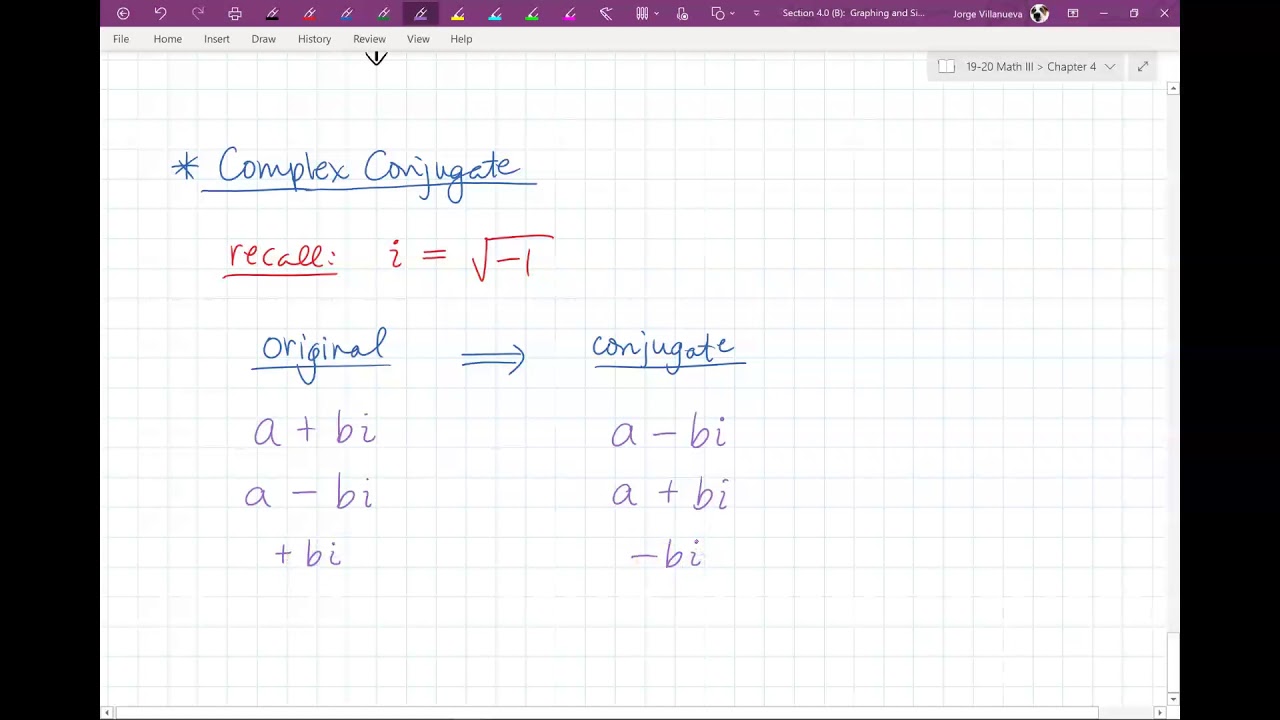 Section 4.0 (B): Graphing and Si... Jorge Villanueva
File Home Insert Draw History Review View Help
19-20 Math III > Chapter 4
* Complex Conjugate
recall: i = √-1
original ⟹ conjugate
a + bi a - bi
a - bi a + bi
+ bi - bi